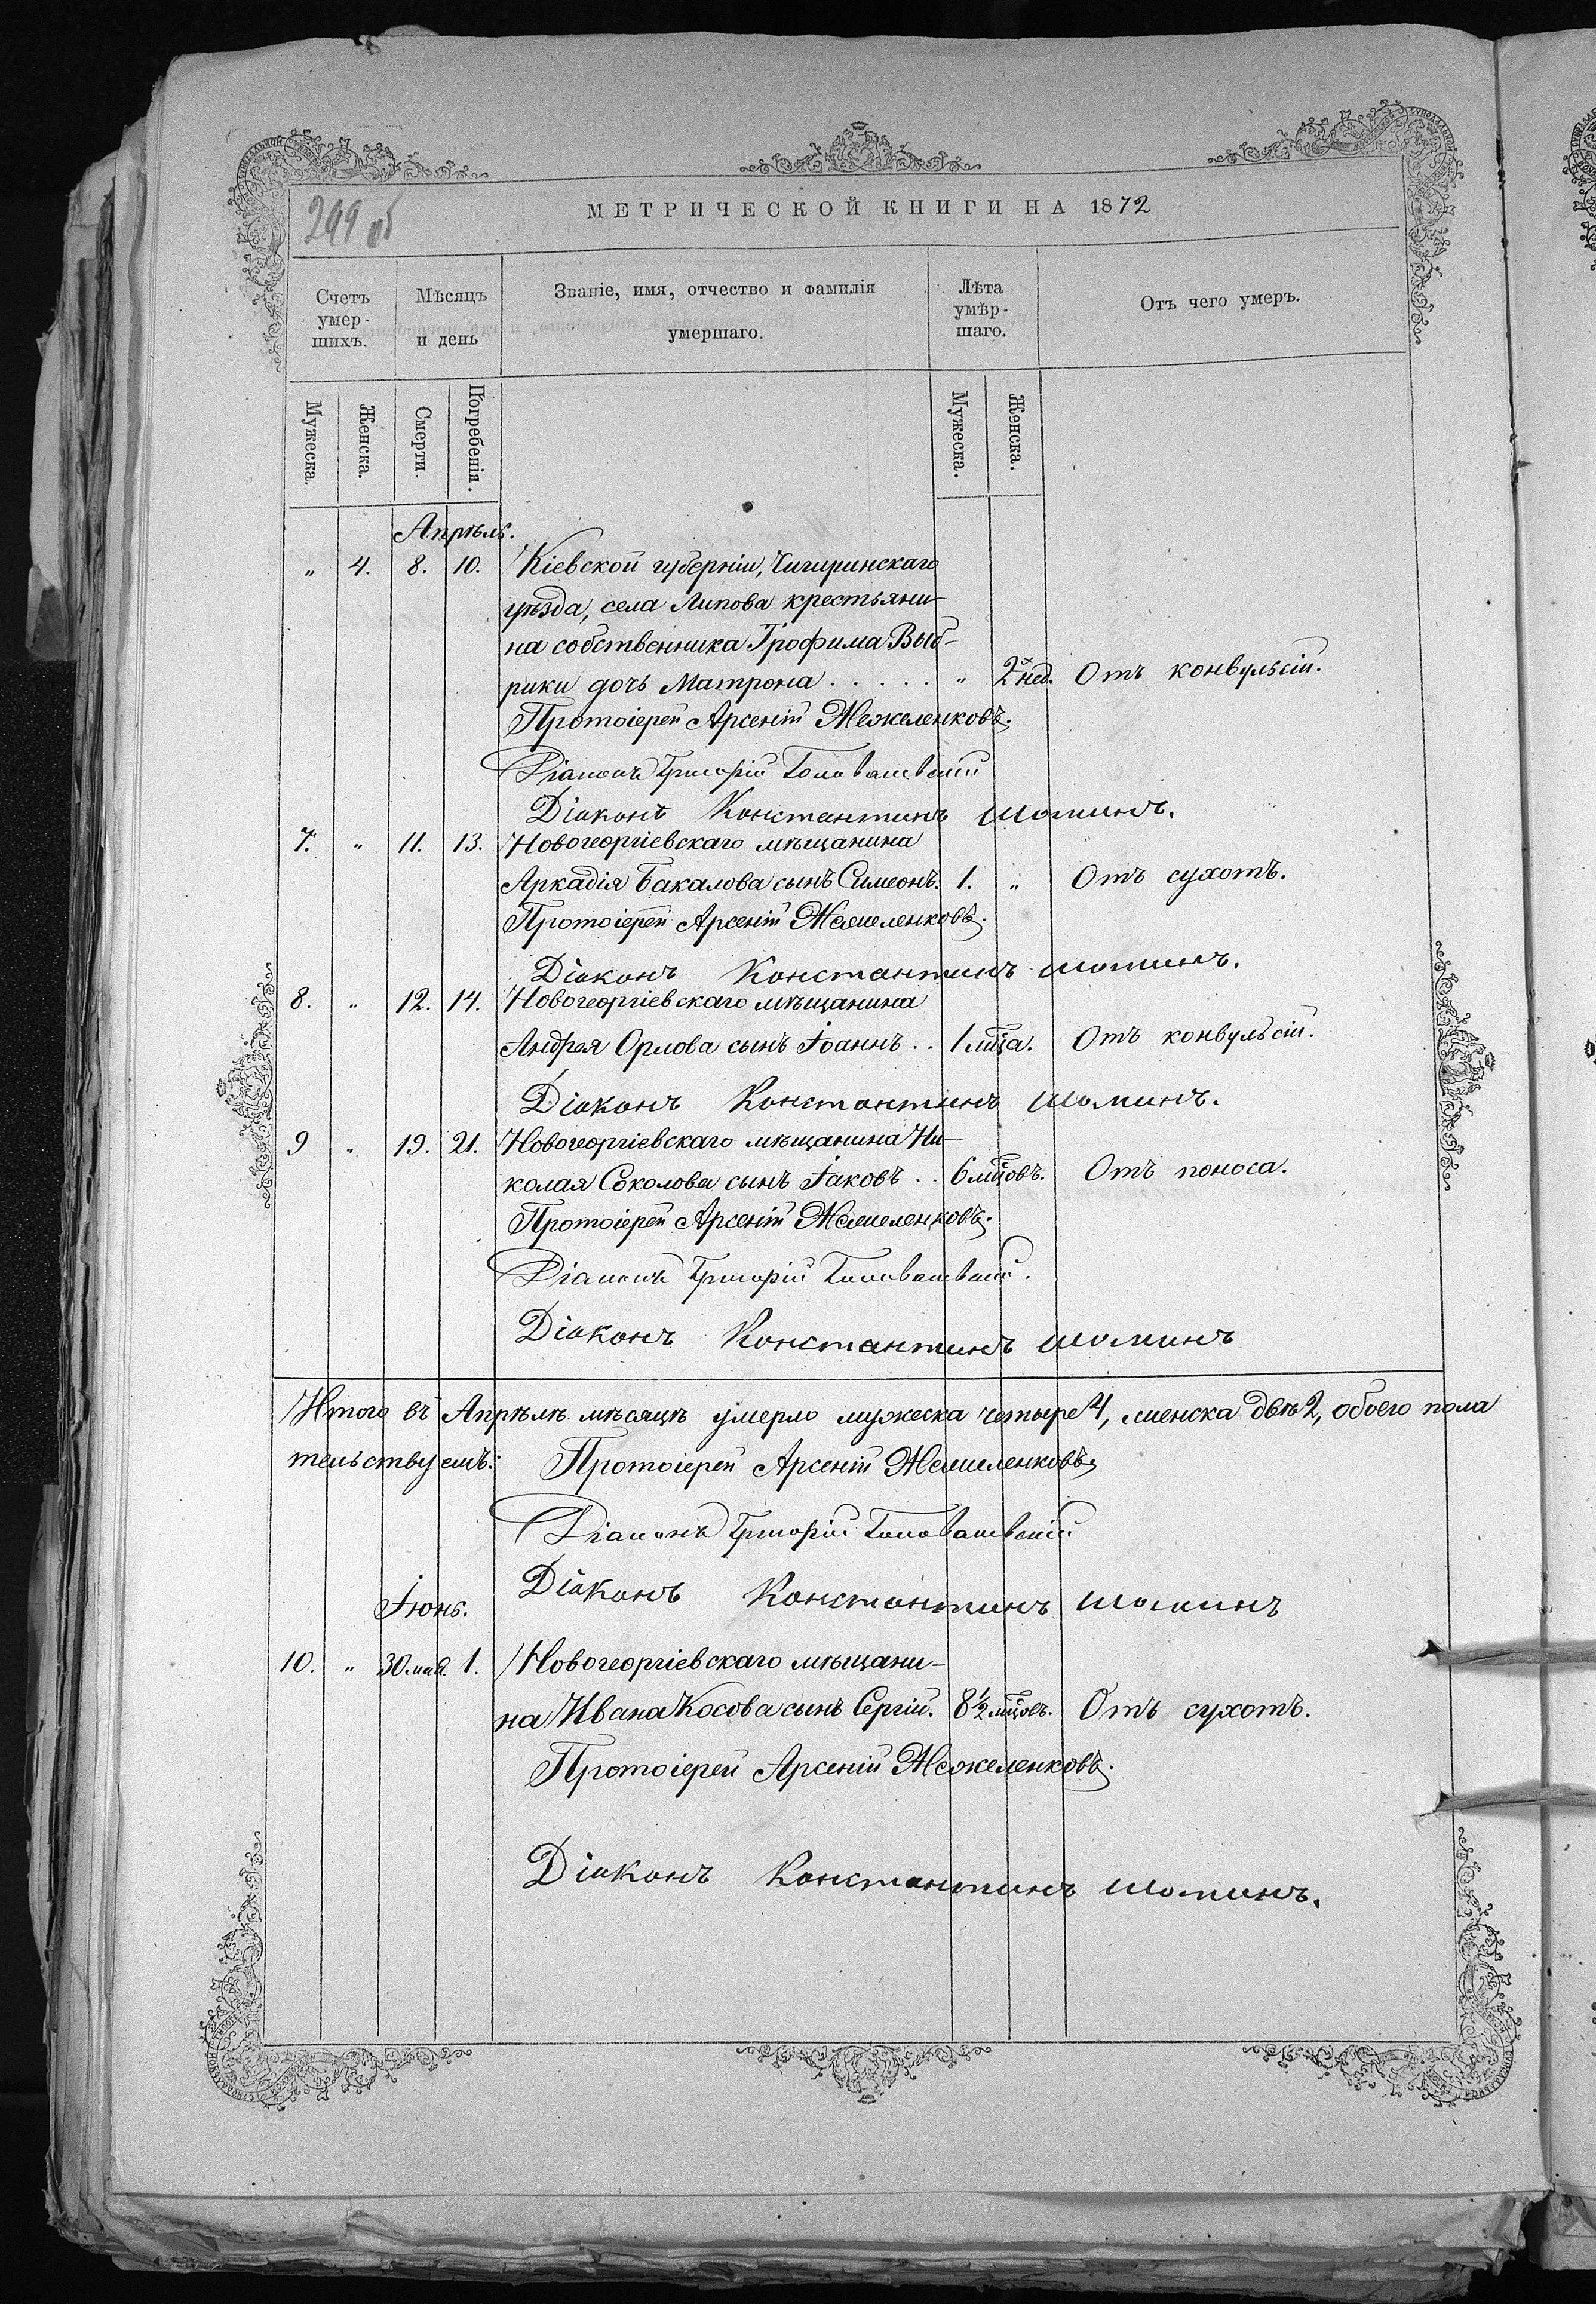 299 об
МЕТРИЧЕСКОЙ КНИГИ НА 1872
Счетъ умер-шихъ. Мѣсяцъ и день Званіе, имя, отчество и фамилія умершаго. Лѣта умѣр-шаго. Отъ чего умеръ.
Мужеска. Женска. Смерти. Погребенія. Мужеска. Женска.
Апрѣль.
„ 4. 8. 10. Кіевской губерніи, Чигиринскаго
уѣзда, села Липова крестьяни-
на собственника Трофима Выб-
рики дочь Матрона . . . . . „ 2х нед. Отъ конвульсіи.
Протоіерей Арсеній Межеленковъ.
Діаконъ Григорій
Діаконъ Константинъ Шоминъ.
7. „ 11. 13. Новогеоргіевскаго мѣщанина
Аркадія Бакалова сынъ Симеонъ. 1. „ Отъ сухотъ.
Протоіерей Арсеній Межеленковъ.
Діаконъ Константинъ Шоминъ.
8. „ 12. 14. Новогеоргіевскаго мѣщанина
Андрея Орлова сынъ Іоаннъ . . 1 мца. Отъ конвульсіи.
Діаконъ Константинъ Шоминъ.
9 „ 19. 21. Новогеоргіевскаго мѣщанина Ни-
колая Соколова сынъ Іаковъ . . 6 мцовъ. Отъ поноса.
Протоіерей Арсеній Межеленковъ.
Діаконъ Григорій
Діаконъ Константинъ Шоминъ
Итого въ Апрѣлѣ мѣсяцѣ умерло мужеска четыре 4, женска двѣ 2, обоего пола
тельствуемъ: Протоіерей Арсеній Межеленковъ.
Діаконъ Григорій
Діаконъ Константинъ Шоминъ
Іюнь.
10. „ 30. мая. 1. Новогеоргіевскаго мѣщани-
на Ивана Косова сынъ Сергій. 8 1/2 мцовъ. Отъ сухотъ.
Протоіерей Арсеній Межеленковъ.
Діаконъ Константинъ Шоминъ.